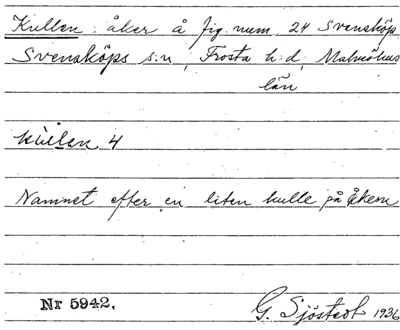 Kullen : åker å fig. num. 24 Svensköp
Svensköps s:n, Frosta h:d, Malmöhus
län
4
Namnet efter en liten kulle på åkern
Nr 5942.
G. Sjöstedt 1936